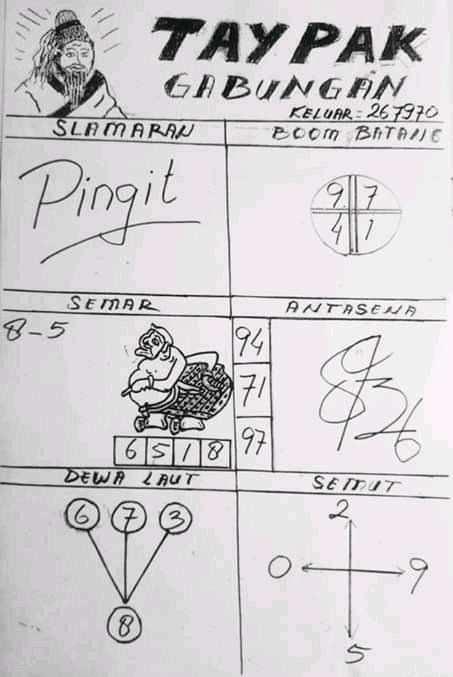 TAYPAK
GABUNGAN
KELUAR = 267970
SLAMARAN
BOOM BATANG
Pingit
9 7
4 1
SEMAR
ANTASENA
8-5
94
71
97
6 5 1 8
DEWA LAUT
SEMUT
6 7 3
8
2
0 9
5